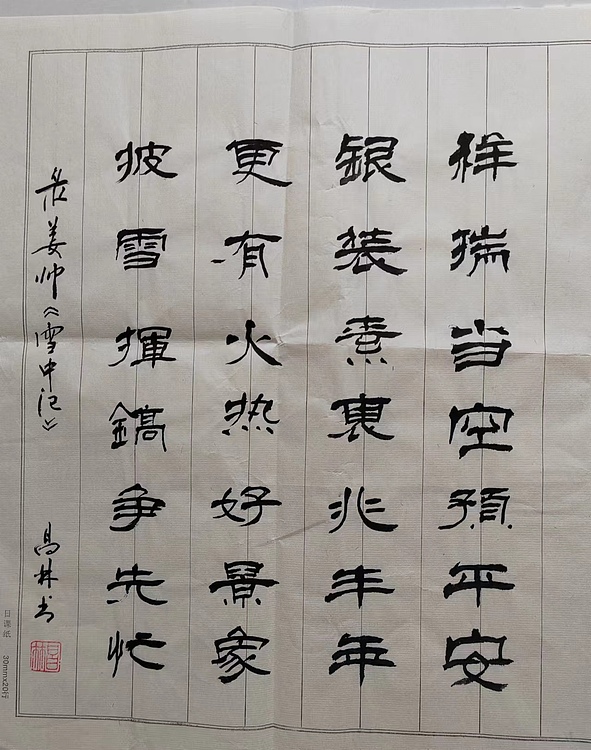 祥瑞当空预平安
銀装素裹兆丰年
更有火热好景象
披雪揮鎬争先忙
录姜帅《雪中记》
高林书
日课纸 30mmx20行